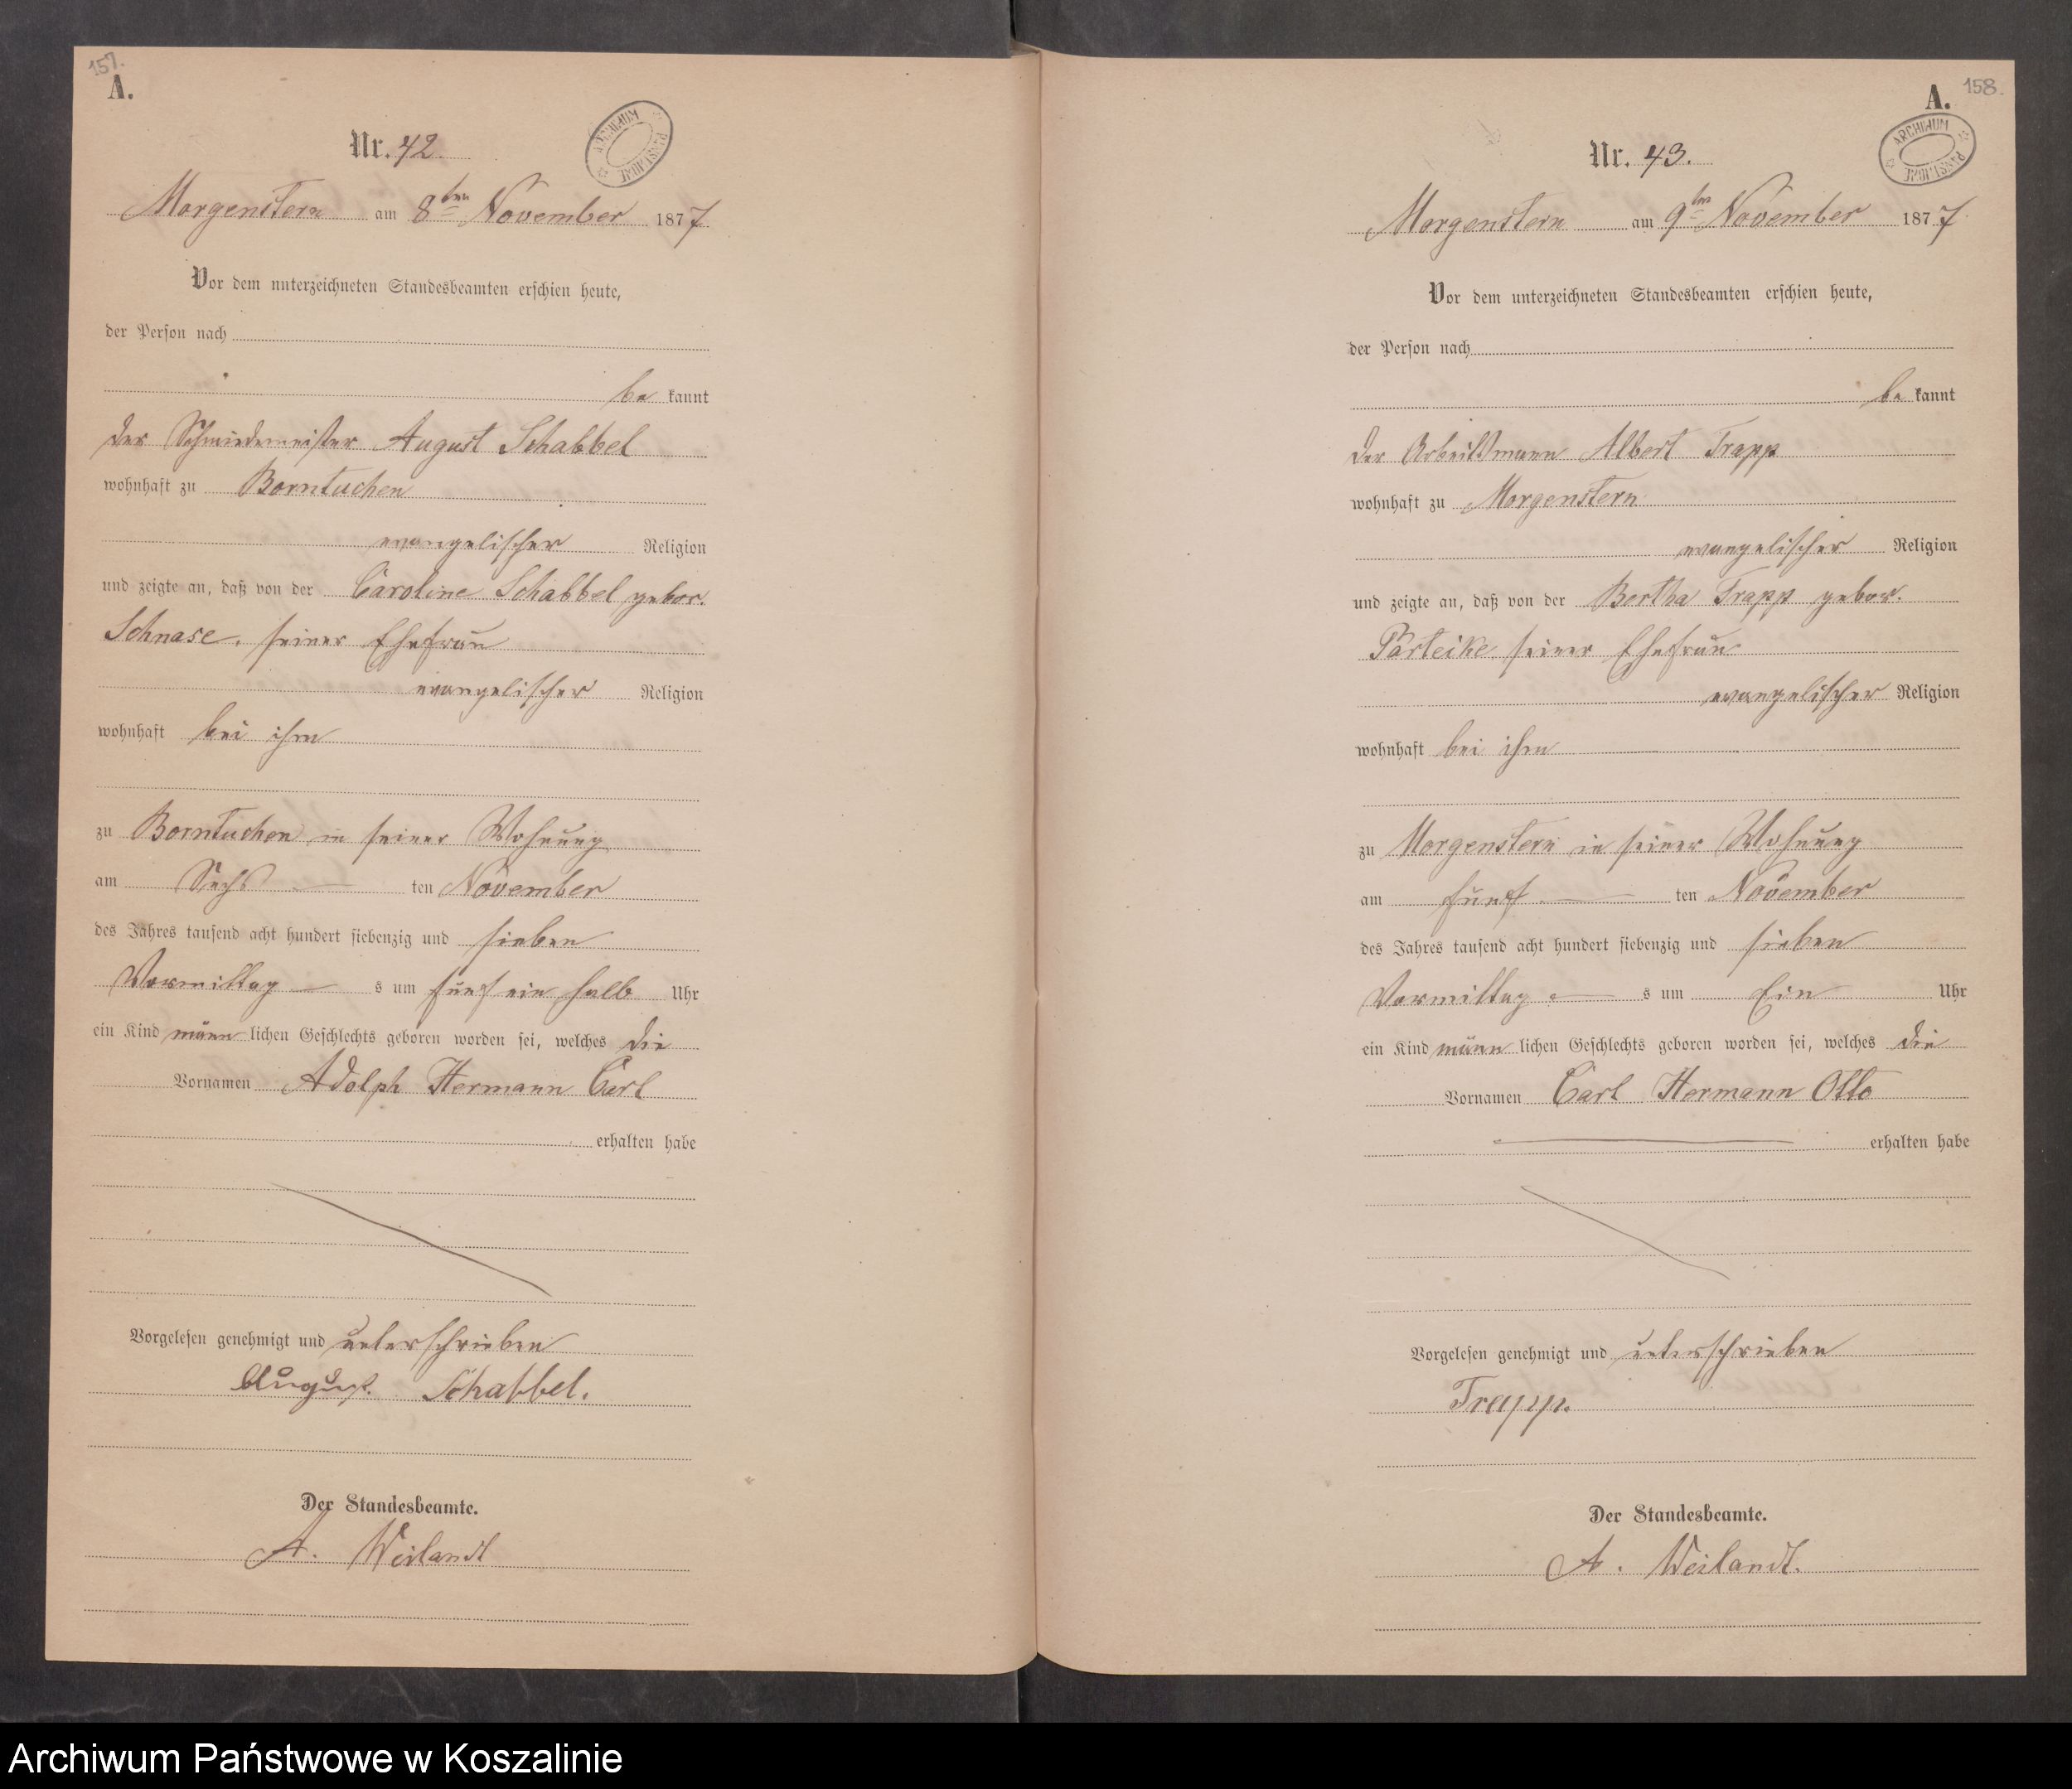 157.
A.
Nr. 42.
ARCHIWUM PAŃSTWOWE
Morgenstern am 8ten November 1877.
Vor dem unterzeichneten Standesbeamten erschien heute,
der Person nach
be kannt
der Schmiedemeister August Schabbel
wohnhaft zu Borntuchen
evangelischer Religion
und zeigte an, daß von der Caroline Schabbel gebor.
Schnase, seiner Ehefrau
evangelischer Religion
wohnhaft bei ihm
zu Borntuchen in seiner Wohnung
am Sechs ten November
des Jahres tausend acht hundert siebenzig und sieben
Vormittag s um fünf ein halb Uhr
ein Kind männ lichen Geschlechts geboren worden sei, welches die
Vornamen Adolph Hermann Carl
erhalten habe
Vorgelesen genehmigt und unterschrieben
August Schabbel.
Der Standesbeamte.
A. Weilandt
158.
A.
Nr. 43.
ARCHIWUM PAŃSTWOWE
Morgenstern am 9ten November 1877
Vor dem unterzeichneten Standesbeamten erschien heute,
der Person nach
be kannt
der Arbeitsmann Albert Trapp
wohnhaft zu Morgenstern
evangelischer Religion
und zeigte an, daß von der Bertha Trapp gebor.
Parteike seiner Ehefrau
evangelischer Religion
wohnhaft bei ihm
zu Morgenstern in seiner Wohnung
am fünf ten November
des Jahres tausend acht hundert siebenzig und sieben
Vormittag s um Ein Uhr
ein Kind männ lichen Geschlechts geboren worden sei, welches die
Vornamen Carl Hermann Otto
erhalten habe
Vorgelesen genehmigt und unterschrieben
Trapp.
Der Standesbeamte.
A. Weilandt.
Archiwum Państwowe w Koszalinie